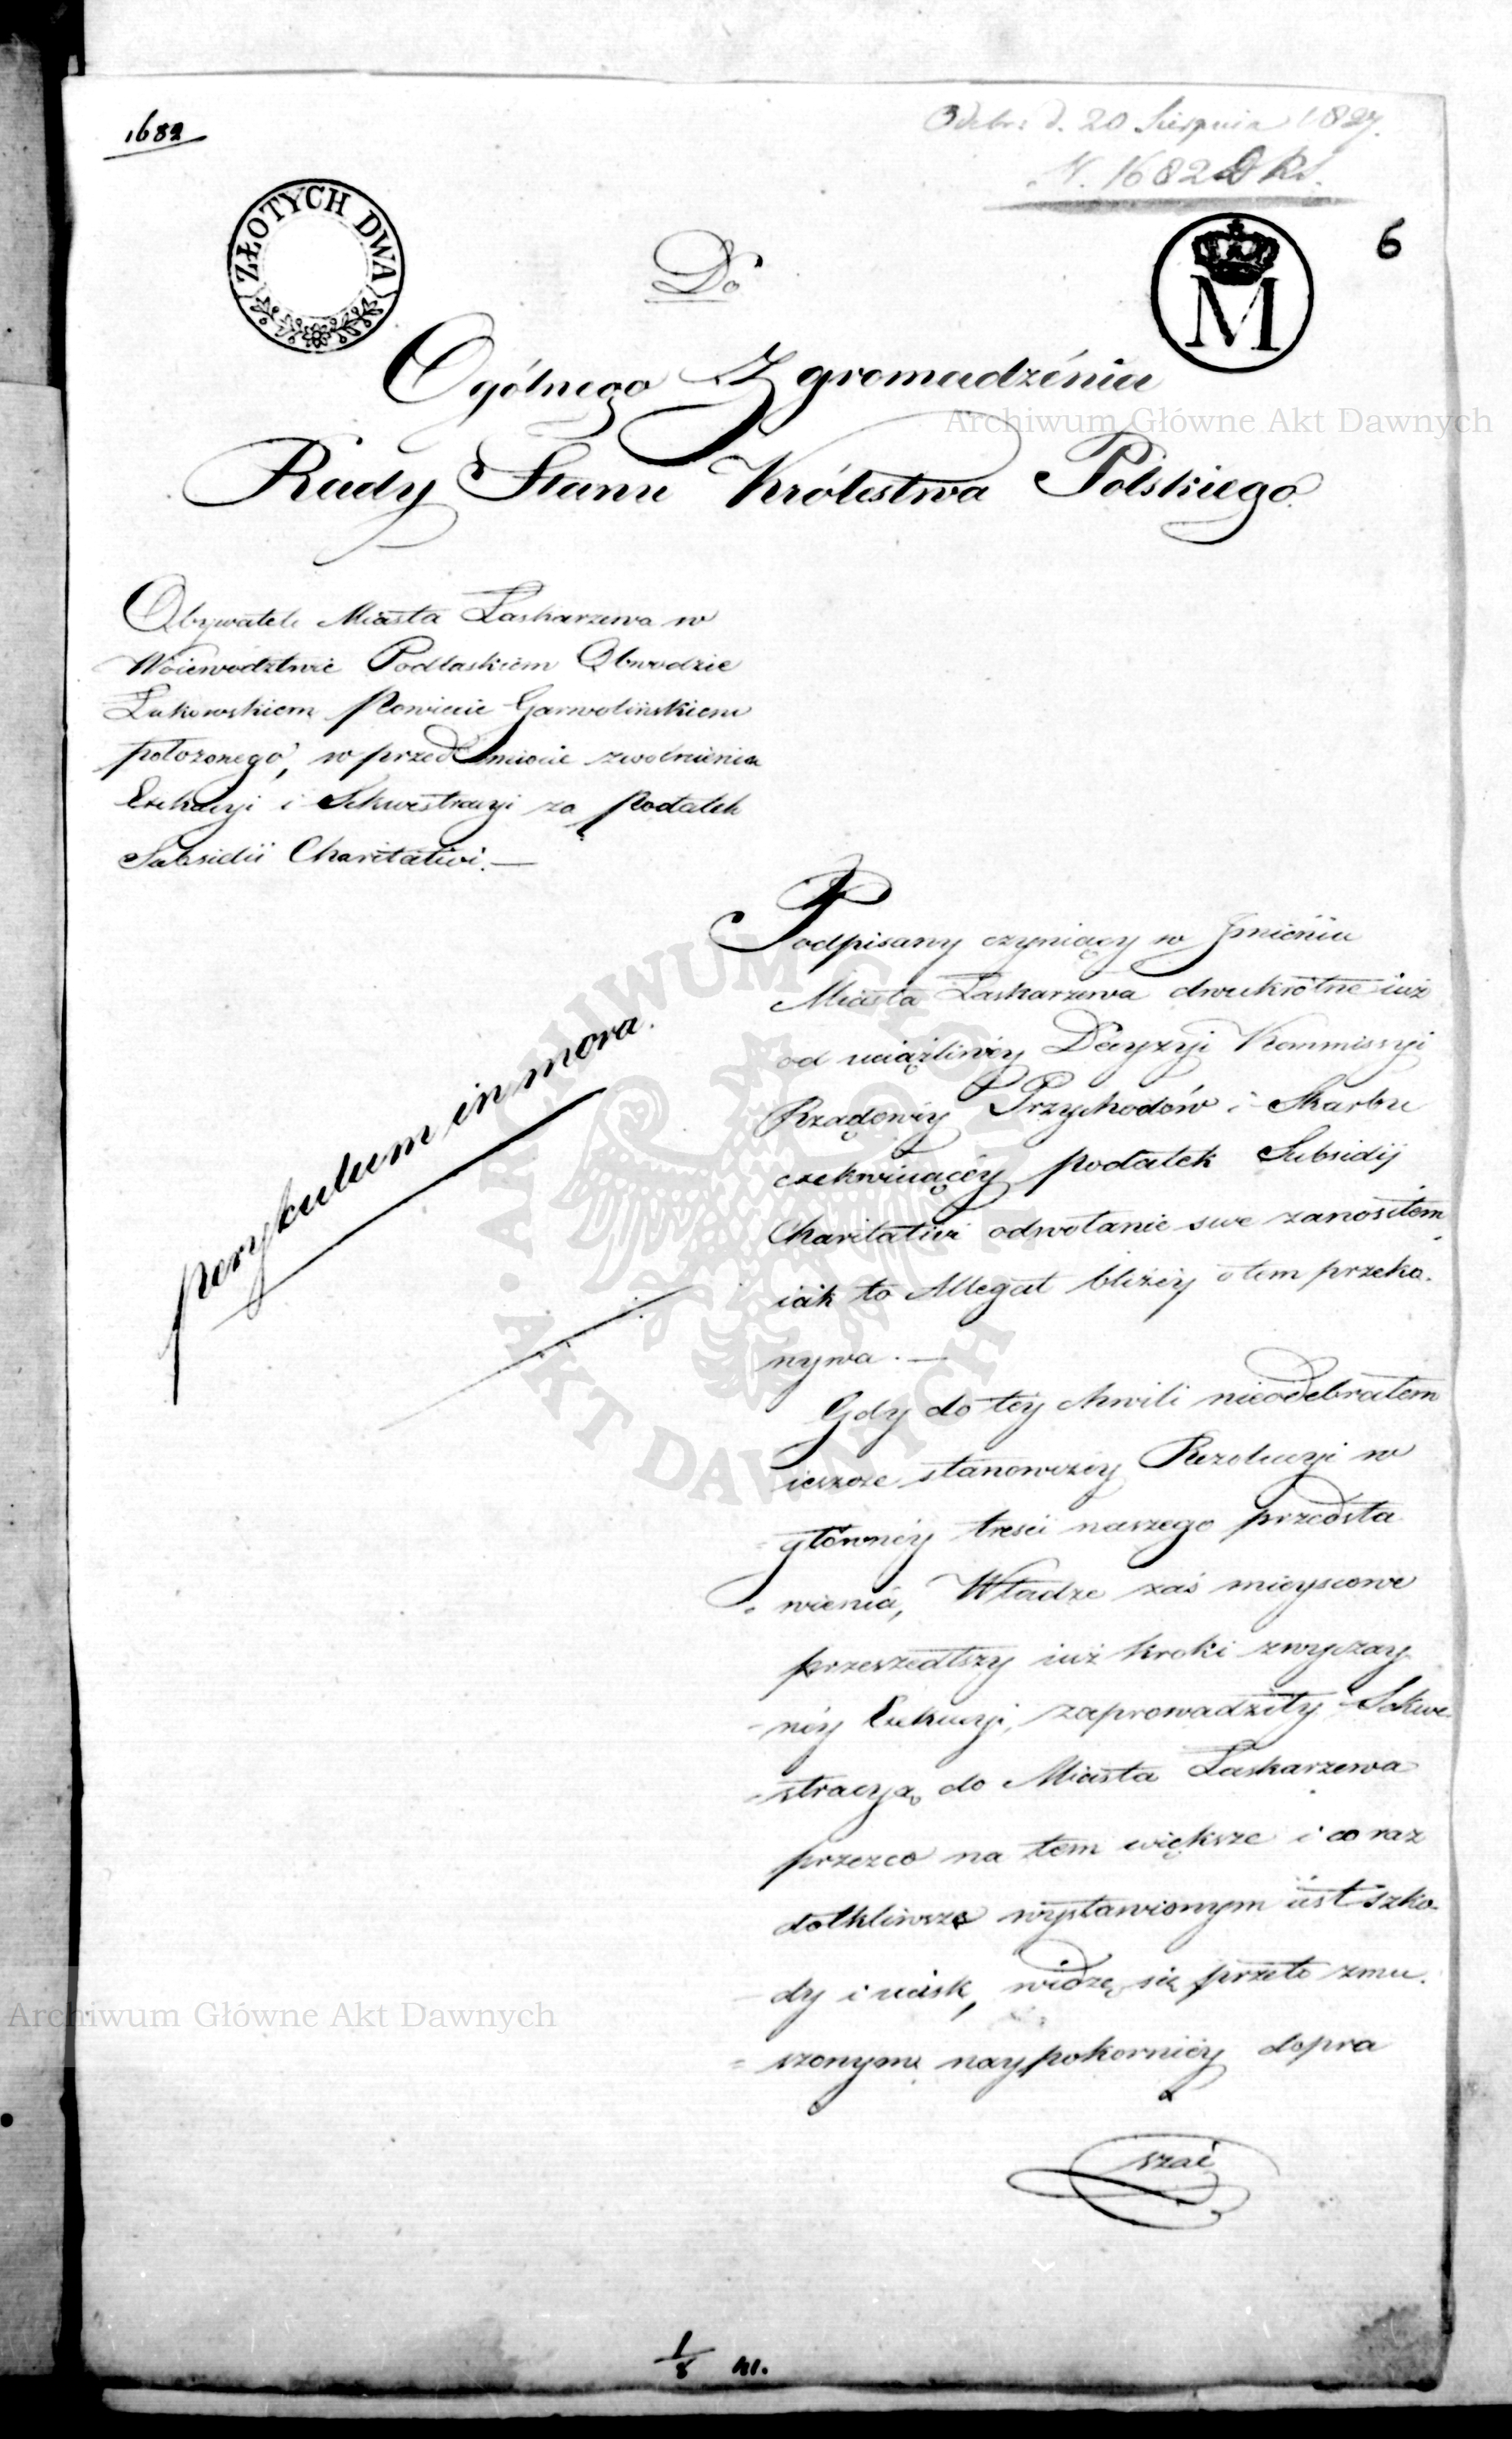 1682
Odebr: d. 20 Sierpnia 1827.
N. 1682 D KS.
ZŁOTYCH DWA
M
6
Do
Ogólnego Zgromadzénia
Rady Stanu Królestwa Polskiego.
Obywatele Miasta Łaskarzewa w
Woiewodztwie Podlaskiem Obwodzie
Łukowskiem Powiecie Garwolińskiem
położonego, w przedmiocie zwolnienia
Exekucyi i Sekwestracyi za podatek
Subsidii Charitativi.—
perykulum in mora.
Podpisany czyniący w Jmieniu
Miasta Łaskarzewa dwukrótne iuż
od uciążliwéy Decyzyi Kommissyi
Rządowéy Przychodów i Skarbu
exekwuiącéy podatek Subsidij
Charitativi odwołanie swe zanosiłem,
iak to Allegat bliżéy o tem przeko-
nywa.—
Gdy do téy chwili nieodebrałem
ieszcze stanowczéy Rezolucyi w
głównéy treści naszego przedsta
wienia, Władze zaś mieyscowe
przeszedłszy iuż kroki zwyczay-
-néy Exekucyi, zaprowadziły Sekwe-
-stracyą do Miasta Łaskarzewa
przezco na tem większe i coraz
dotkliwsze wystawionym iest szko-
-dy i ucisk, widzę się przeto zmu-
=szonym naypokorniéy dopra
szać
1/8 M.
Archiwum Główne Akt Dawnych
ARCHIWUM GŁÓWNE
AKT DAWNYCH
Archiwum Główne Akt Dawnych